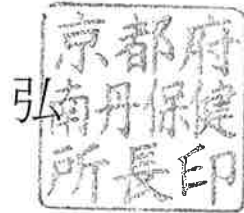 弘
京都府
南丹保健
所長印